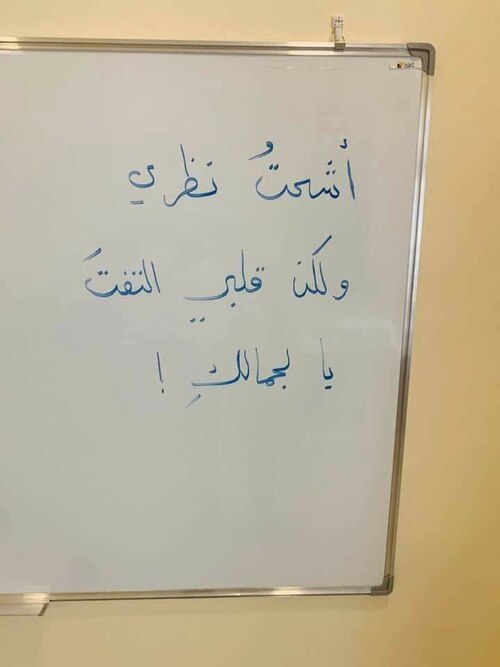 أشحتُ نظري
ولكن قلبي التفتَ
يا لجمالكِ !